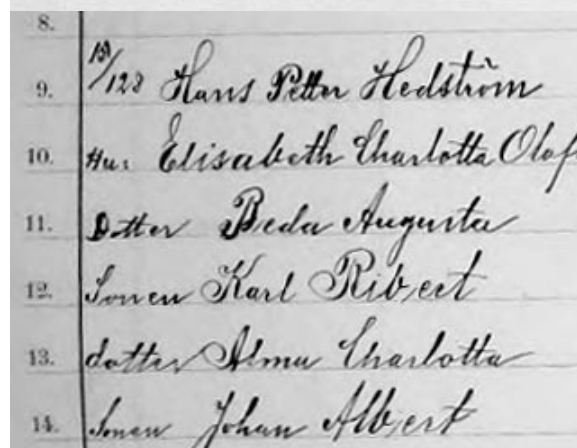 8.
9. 13/128 Hans Petter Hedström
10. Hu: Elisabeth Charlotta Olof
11. Dotter Beda Augusta
12. Sonen Karl Ribert
13. dotter Alma Charlotta
14. Sonen Johan Albert